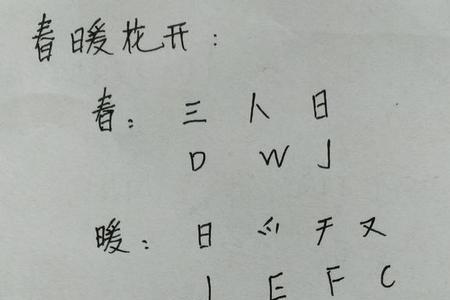 春暖花开：
春： 三 人 日
D W J
暖： 日 爫 于 又
J E F C